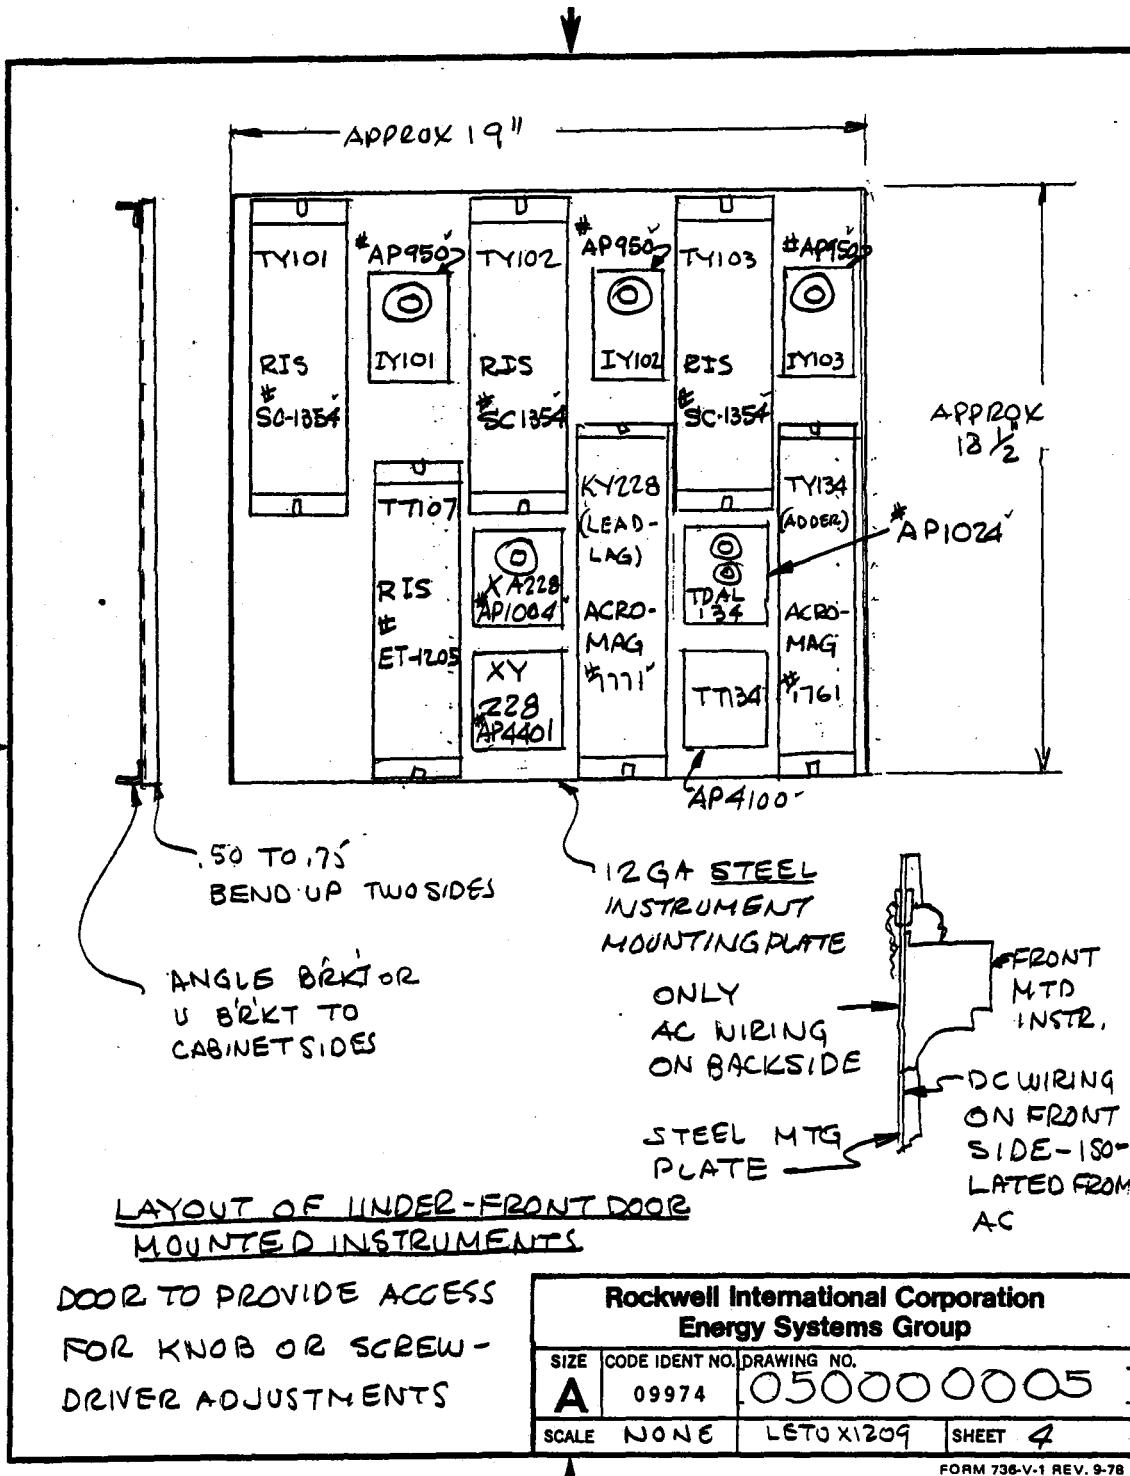 APPROX 19"
TY101
RIS
#
SC-1354
#AP950
IY101
TY102
RIS
#
SC1354
#AP950
IY102
TY103
RIS
#
SC-1354
#AP950
IY103
APPROX
18 1/2"
TT107
RIS
#
ET-1205
XA228
#AP1004
XY
228
#AP4401
KY228
(LEAD-
LAG)
ACRO-
MAG
#1771
TDAL
134
TT134
TY134
(ADDER)
ACRO-
MAG
#1761
#AP1024
AP4100
.50 TO .75
BEND UP TWO SIDES
ANGLE BRKT OR
U BRKT TO
CABINET SIDES
12GA STEEL
INSTRUMENT
MOUNTING PLATE
ONLY
AC WIRING
ON BACKSIDE
STEEL MTG
PLATE
FRONT
MTD
INSTR.
DC WIRING
ON FRONT
SIDE-ISO-
LATED FROM
AC
LAYOUT OF UNDER-FRONT DOOR
MOUNTED INSTRUMENTS
DOOR TO PROVIDE ACCESS
FOR KNOB OR SCREW-
DRIVER ADJUSTMENTS
Rockwell International Corporation
Energy Systems Group
SIZE
A
CODE IDENT NO.
09974
DRAWING NO.
0500000005
SCALE NONE
SHEET 4
FORM 736-V-1 REV. 9-78